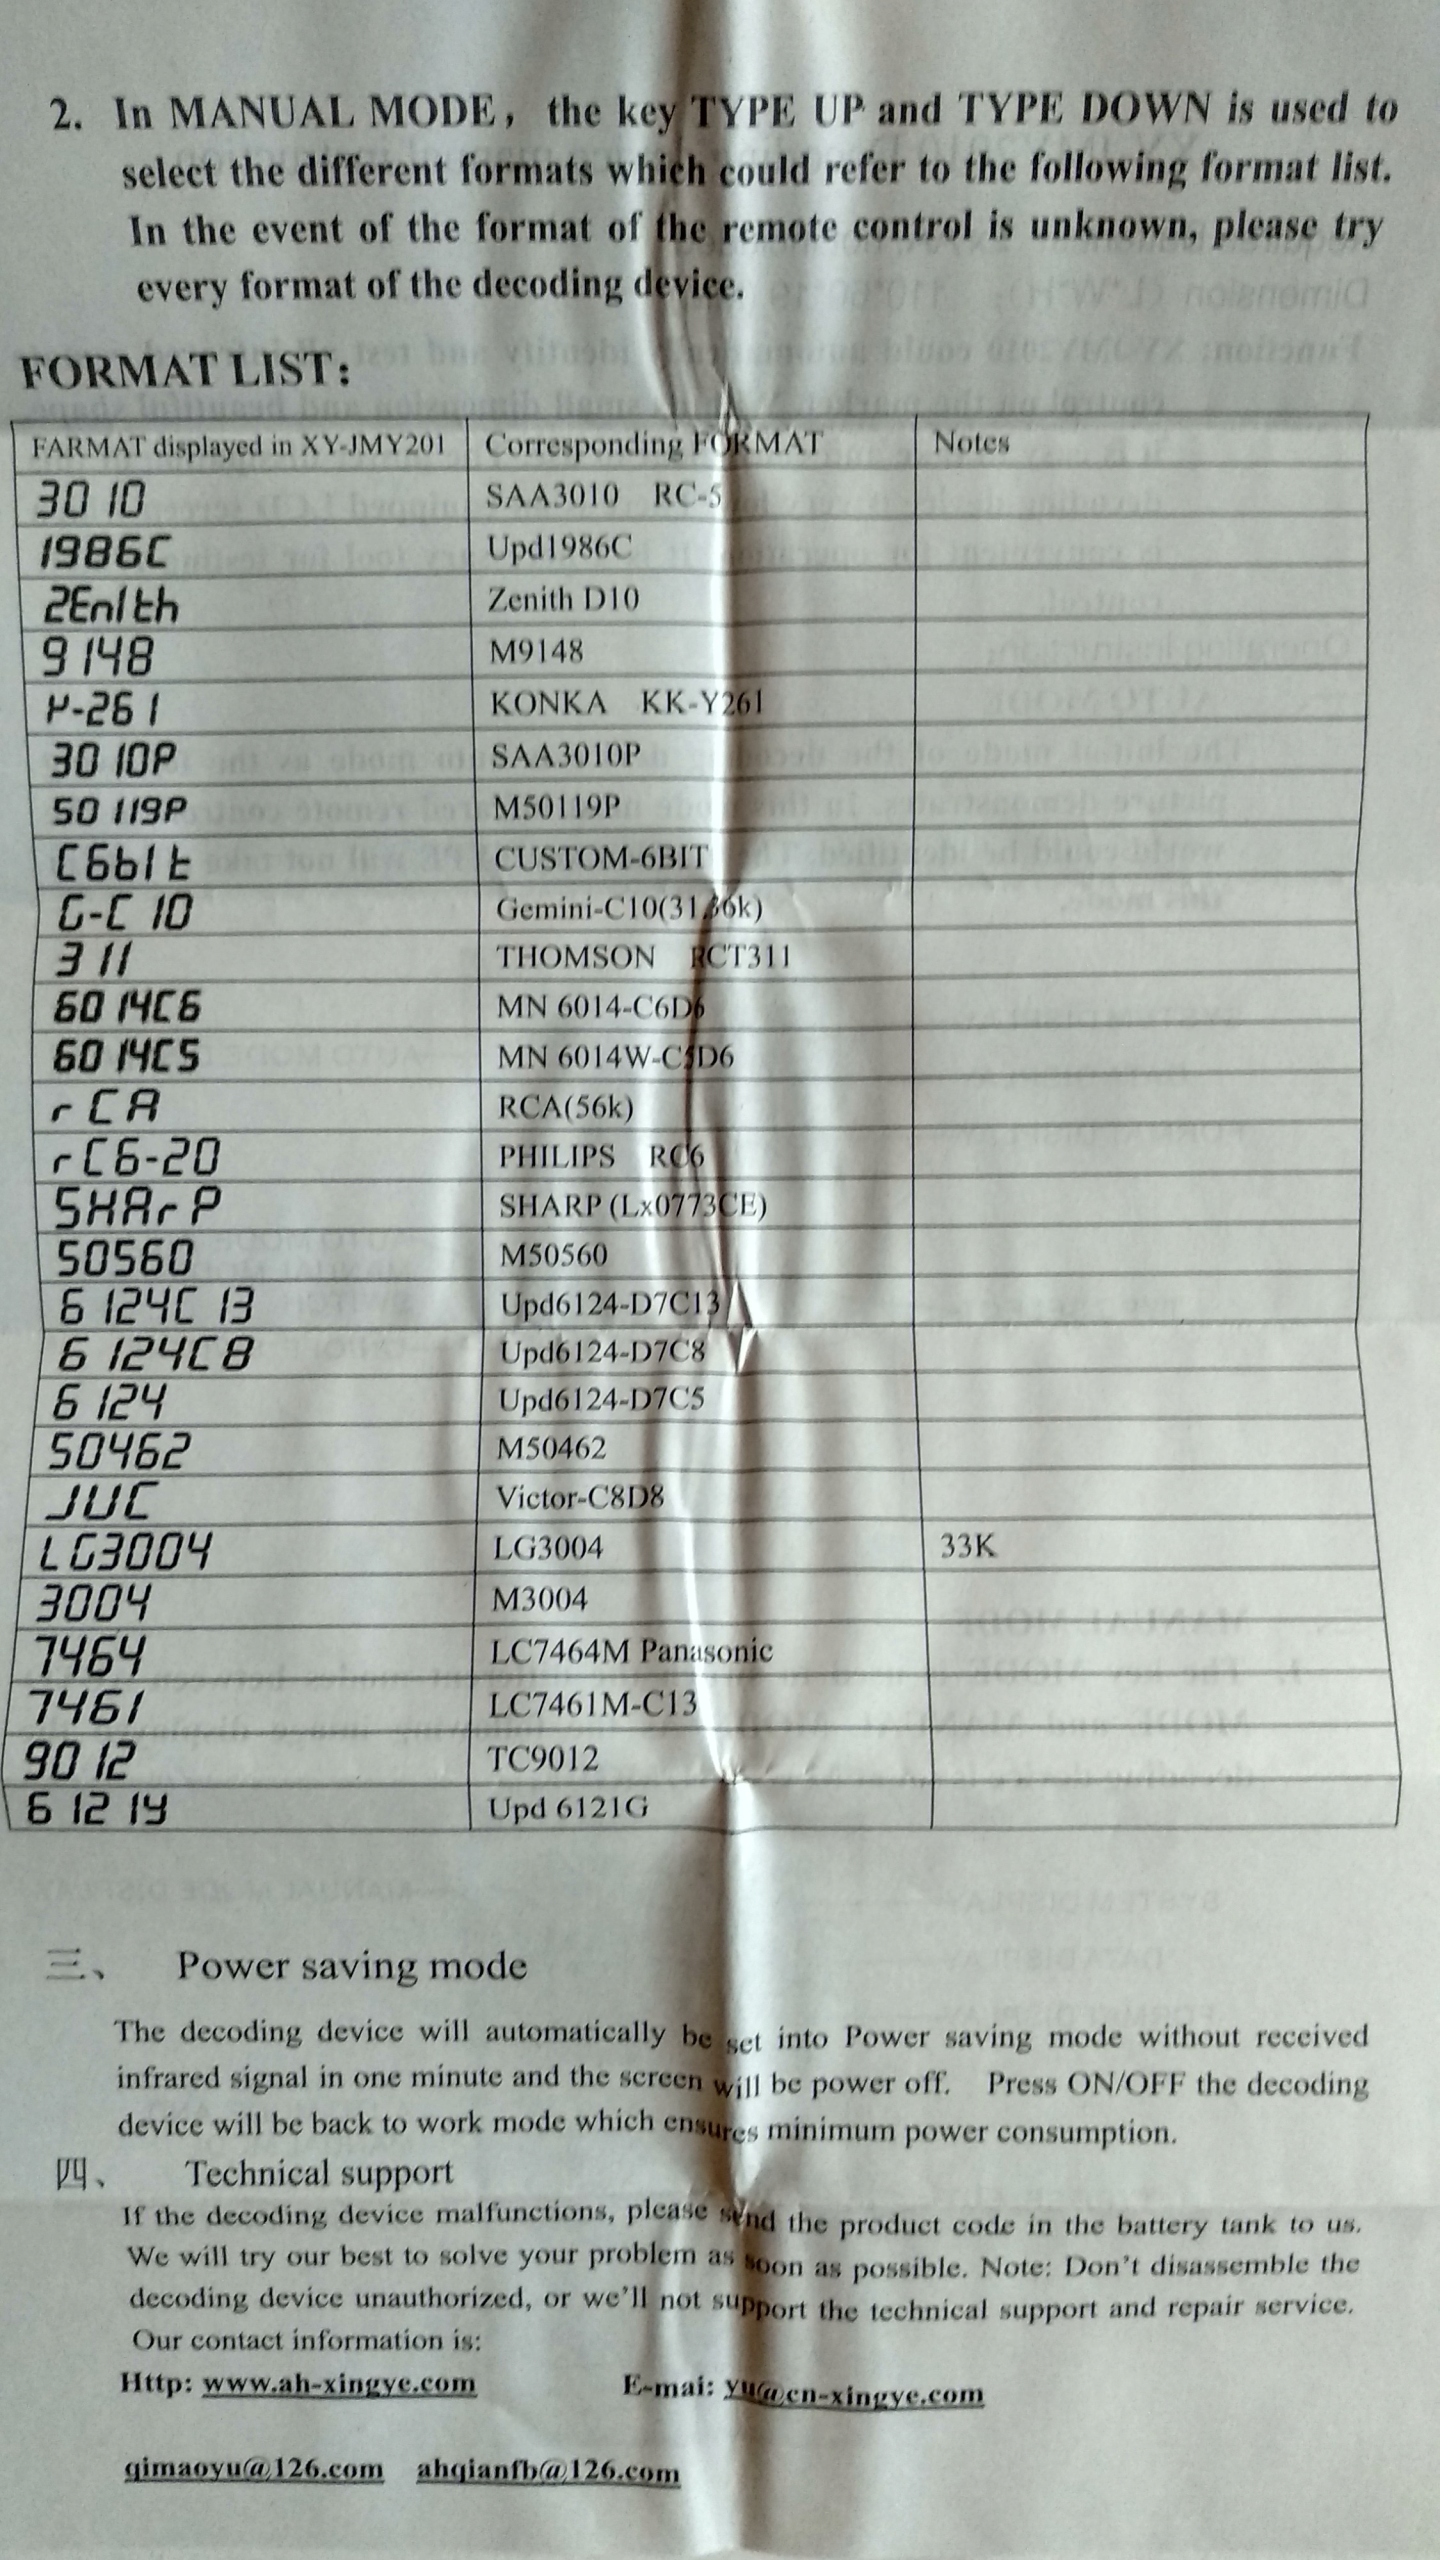 2. In MANUAL MODE, the key TYPE UP and TYPE DOWN is used to
select the different formats which could refer to the following format list.
In the event of the format of the remote control is unknown, please try
every format of the decoding device.
FORMAT LIST:
FARMAT displayed in XY-JMY201 Corresponding FORMAT Notes
3010 SAA3010 RC-5
1986C Upd1986C
2Enlth Zenith D10
9148 M9148
Y-261 KONKA KK-Y261
3010P SAA3010P
50119P M50119P
C6blt CUSTOM-6BIT
G-C10 Gemini-C10(31.36k)
311 THOMSON RCT311
6014C6 MN 6014-C6D6
6014C5 MN 6014W-C5D6
rCA RCA(56k)
rC6-20 PHILIPS RC6
SHArP SHARP (Lx0773CE)
50560 M50560
6124C13 Upd6124-D7C13
6124C8 Upd6124-D7C8
6124 Upd6124-D7C5
50462 M50462
JUC Victor-C8D8
LG3004 LG3004 33K
3004 M3004
7464 LC7464M Panasonic
7461 LC7461M-C13
9012 TC9012
6121y Upd 6121G
三、 Power saving mode
The decoding device will automatically be set into Power saving mode without received
infrared signal in one minute and the screen will be power off. Press ON/OFF the decoding
device will be back to work mode which ensures minimum power consumption.
四、 Technical support
If the decoding device malfunctions, please send the product code in the battery tank to us.
We will try our best to solve your problem as soon as possible. Note: Don't disassemble the
decoding device unauthorized, or we'll not support the technical support and repair service.
Our contact information is:
Http: www.ah-xingye.com E-mai: yu@cn-xingye.com
qimaoyu@126.com ahqianfb@126.com